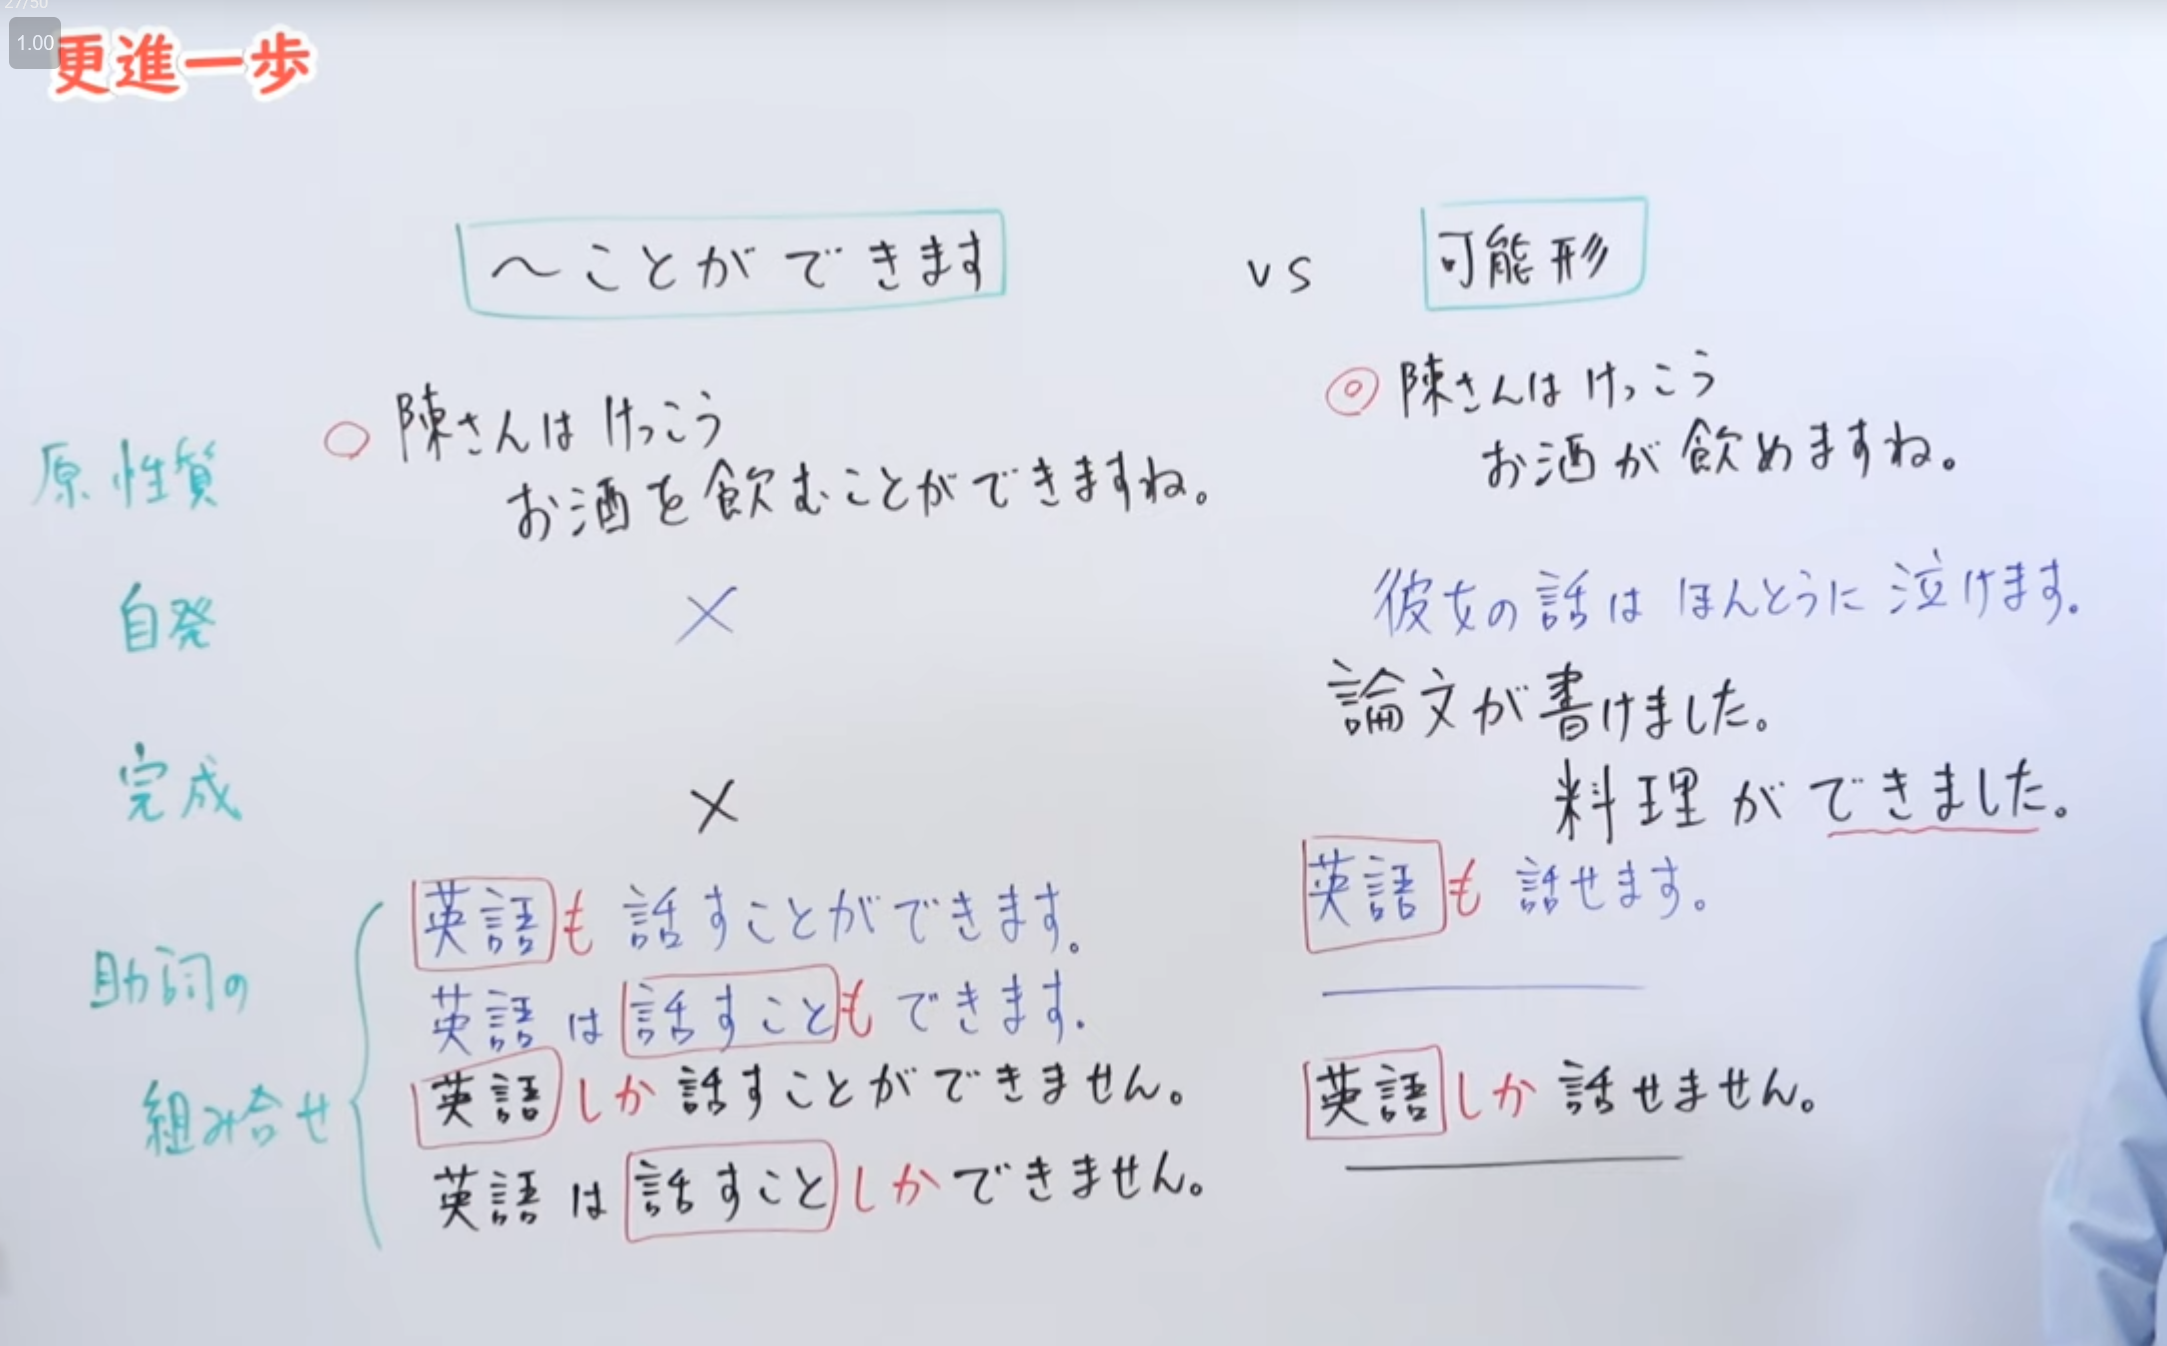 27/50
1.00
更進一歩
～ことができます vs 可能形
原性質
○ 陳さんは けっこう
お酒を飲むことができますね。
◎ 陳さんは けっこう
お酒が飲めますね。
自発
×
彼女の話は ほんとうに 泣けます。
完成
×
論文が書けました。
料理ができました。
助詞の
組み合せ
英語も 話すことができます。
英語は話すことも できます。
英語しか 話すことができません。
英語は話すことしかできません。
英語も 話せます。
英語しか 話せません。